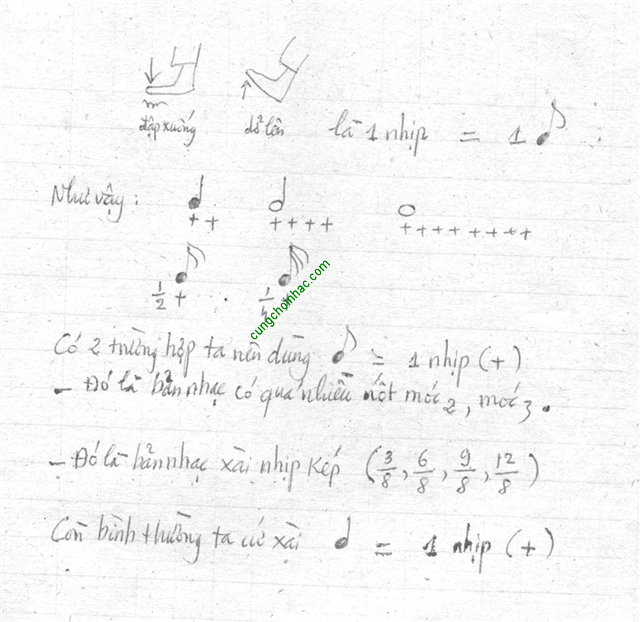 đập xuống dở lên là 1 nhịp = 1 ♪ :
Như vậy :
+ + + + + + + + + + + + + +
1/2 + .. 1/4 +
cungchoinhac.com
Có 2 trường hợp ta nên dùng ♪ = 1 nhịp (+)
- Đó là bản nhạc có quá nhiều nốt móc 2, móc 3.
- Đó là bản nhạc xài nhịp kép (3/8, 6/8, 9/8, 12/8)
Còn bình thường ta cứ xài ♩ = 1 nhịp (+)